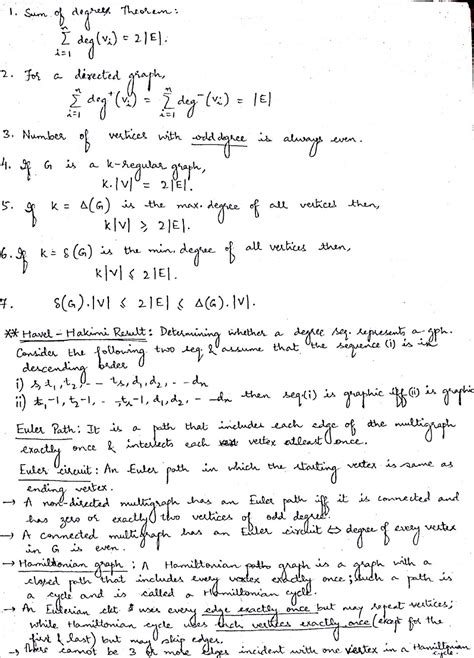 1. Sum of degrees Theorem:
n∑i=1 deg(vi) = 2|E|.
2. For a directed graph,
n∑i=1 deg⁺(vi) = n∑i=1 deg⁻(vi) = |E|
3. Number of vertices with odd dgree is always even.
4. If G is a k-regular graph,
K.|V| = 2|E|.
5. If k = Δ(G) is the max. degree of all vertices then,
k|V| ≥ 2|E|.
6. If k = δ(G) is the min. degree of all vertices then,
k|V| ≤ 2|E|
7. δ(G).|V| ≤ 2|E| ≤ Δ(G).|V|.
** Havel - Hakimi Result: Determining whether a degree seq. represents a gph.
Consider the following two seq. & assume that the sequence (i) is in
descending order
i) s, t1, t2, -- ts, d1, d2, - - dn
ii) t1-1, t2-1, - - ts-1, d1, d2, - - dn then seq.(i) is graphic iff (ii) is graphic
Euler Path: It is a path that includes each edge of the multigraph
exactly once & intersects each vertex atleast once.
Euler circuit: An Euler path in which the starting vertex is same as
ending vertex.
→ A non-directed multigraph has an Euler path iff it is connected and
has zero or exactly two vertices of odd degree.
→ A connected multigraph has an Euler circuit ⇔ degree of every vertex
in G is even.
→ Hamiltonian graph: A Hamiltonian graph is a graph with a
closed path that includes every vertex exactly once; such a path is
a cycle and is called a Hamiltonian cycle.
→ An Eulerian ckt uses every edge exactly once but may repeat vertices;
while Hamiltonian cycle uses each vertices exactly once (except for the
first & last) but may skip edges.
→ There cannot be 3 or more edges incident with one vertex in a Hamiltonian
cycle.